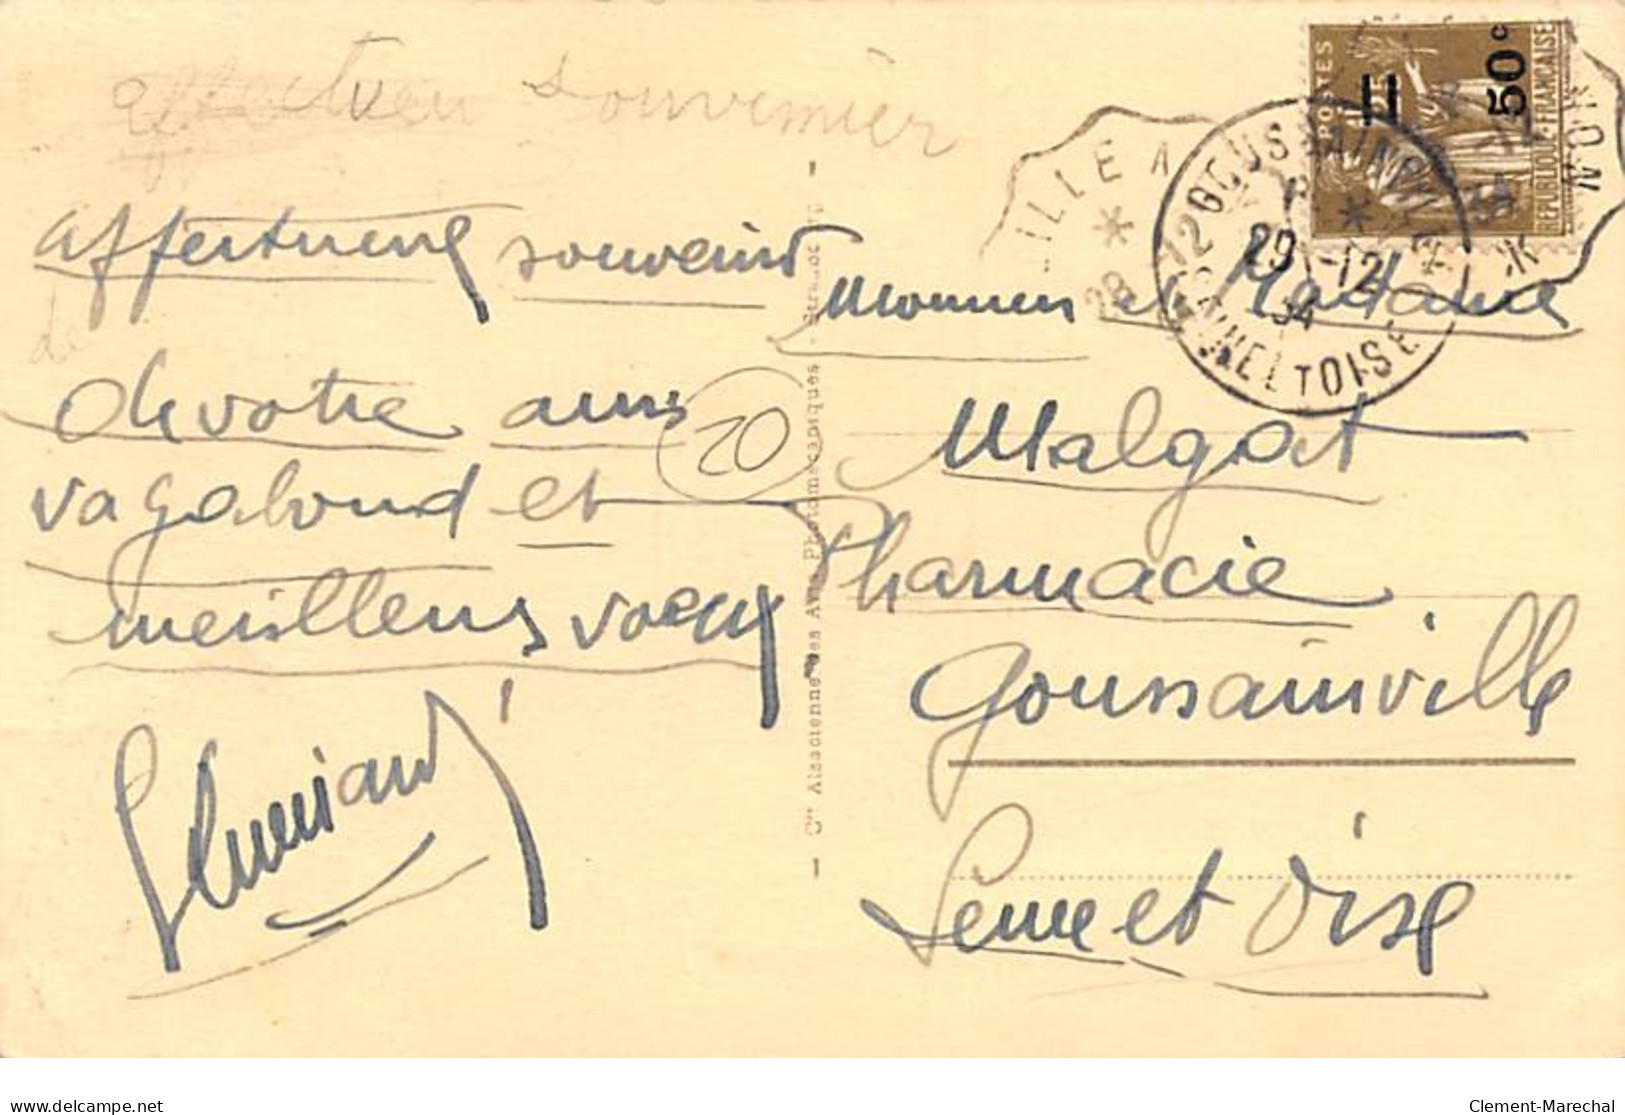 affectueu souvenier
affectueux souvenir
de votre ami
vagabond et
meilleurs voeux
20
Cie Alsacienne des Arts Photomécaniques - Strasbourg
POSTES
50c
REPUBLIQUE FRANCAISE
GOUSSAINVILLE
29 -12
34
SEINE ET OISE
28 -12
Monsieur et Madame
Malgat
Pharmacie
Goussainville
Seine et Oise
delcampe.net
Clement-Marechal